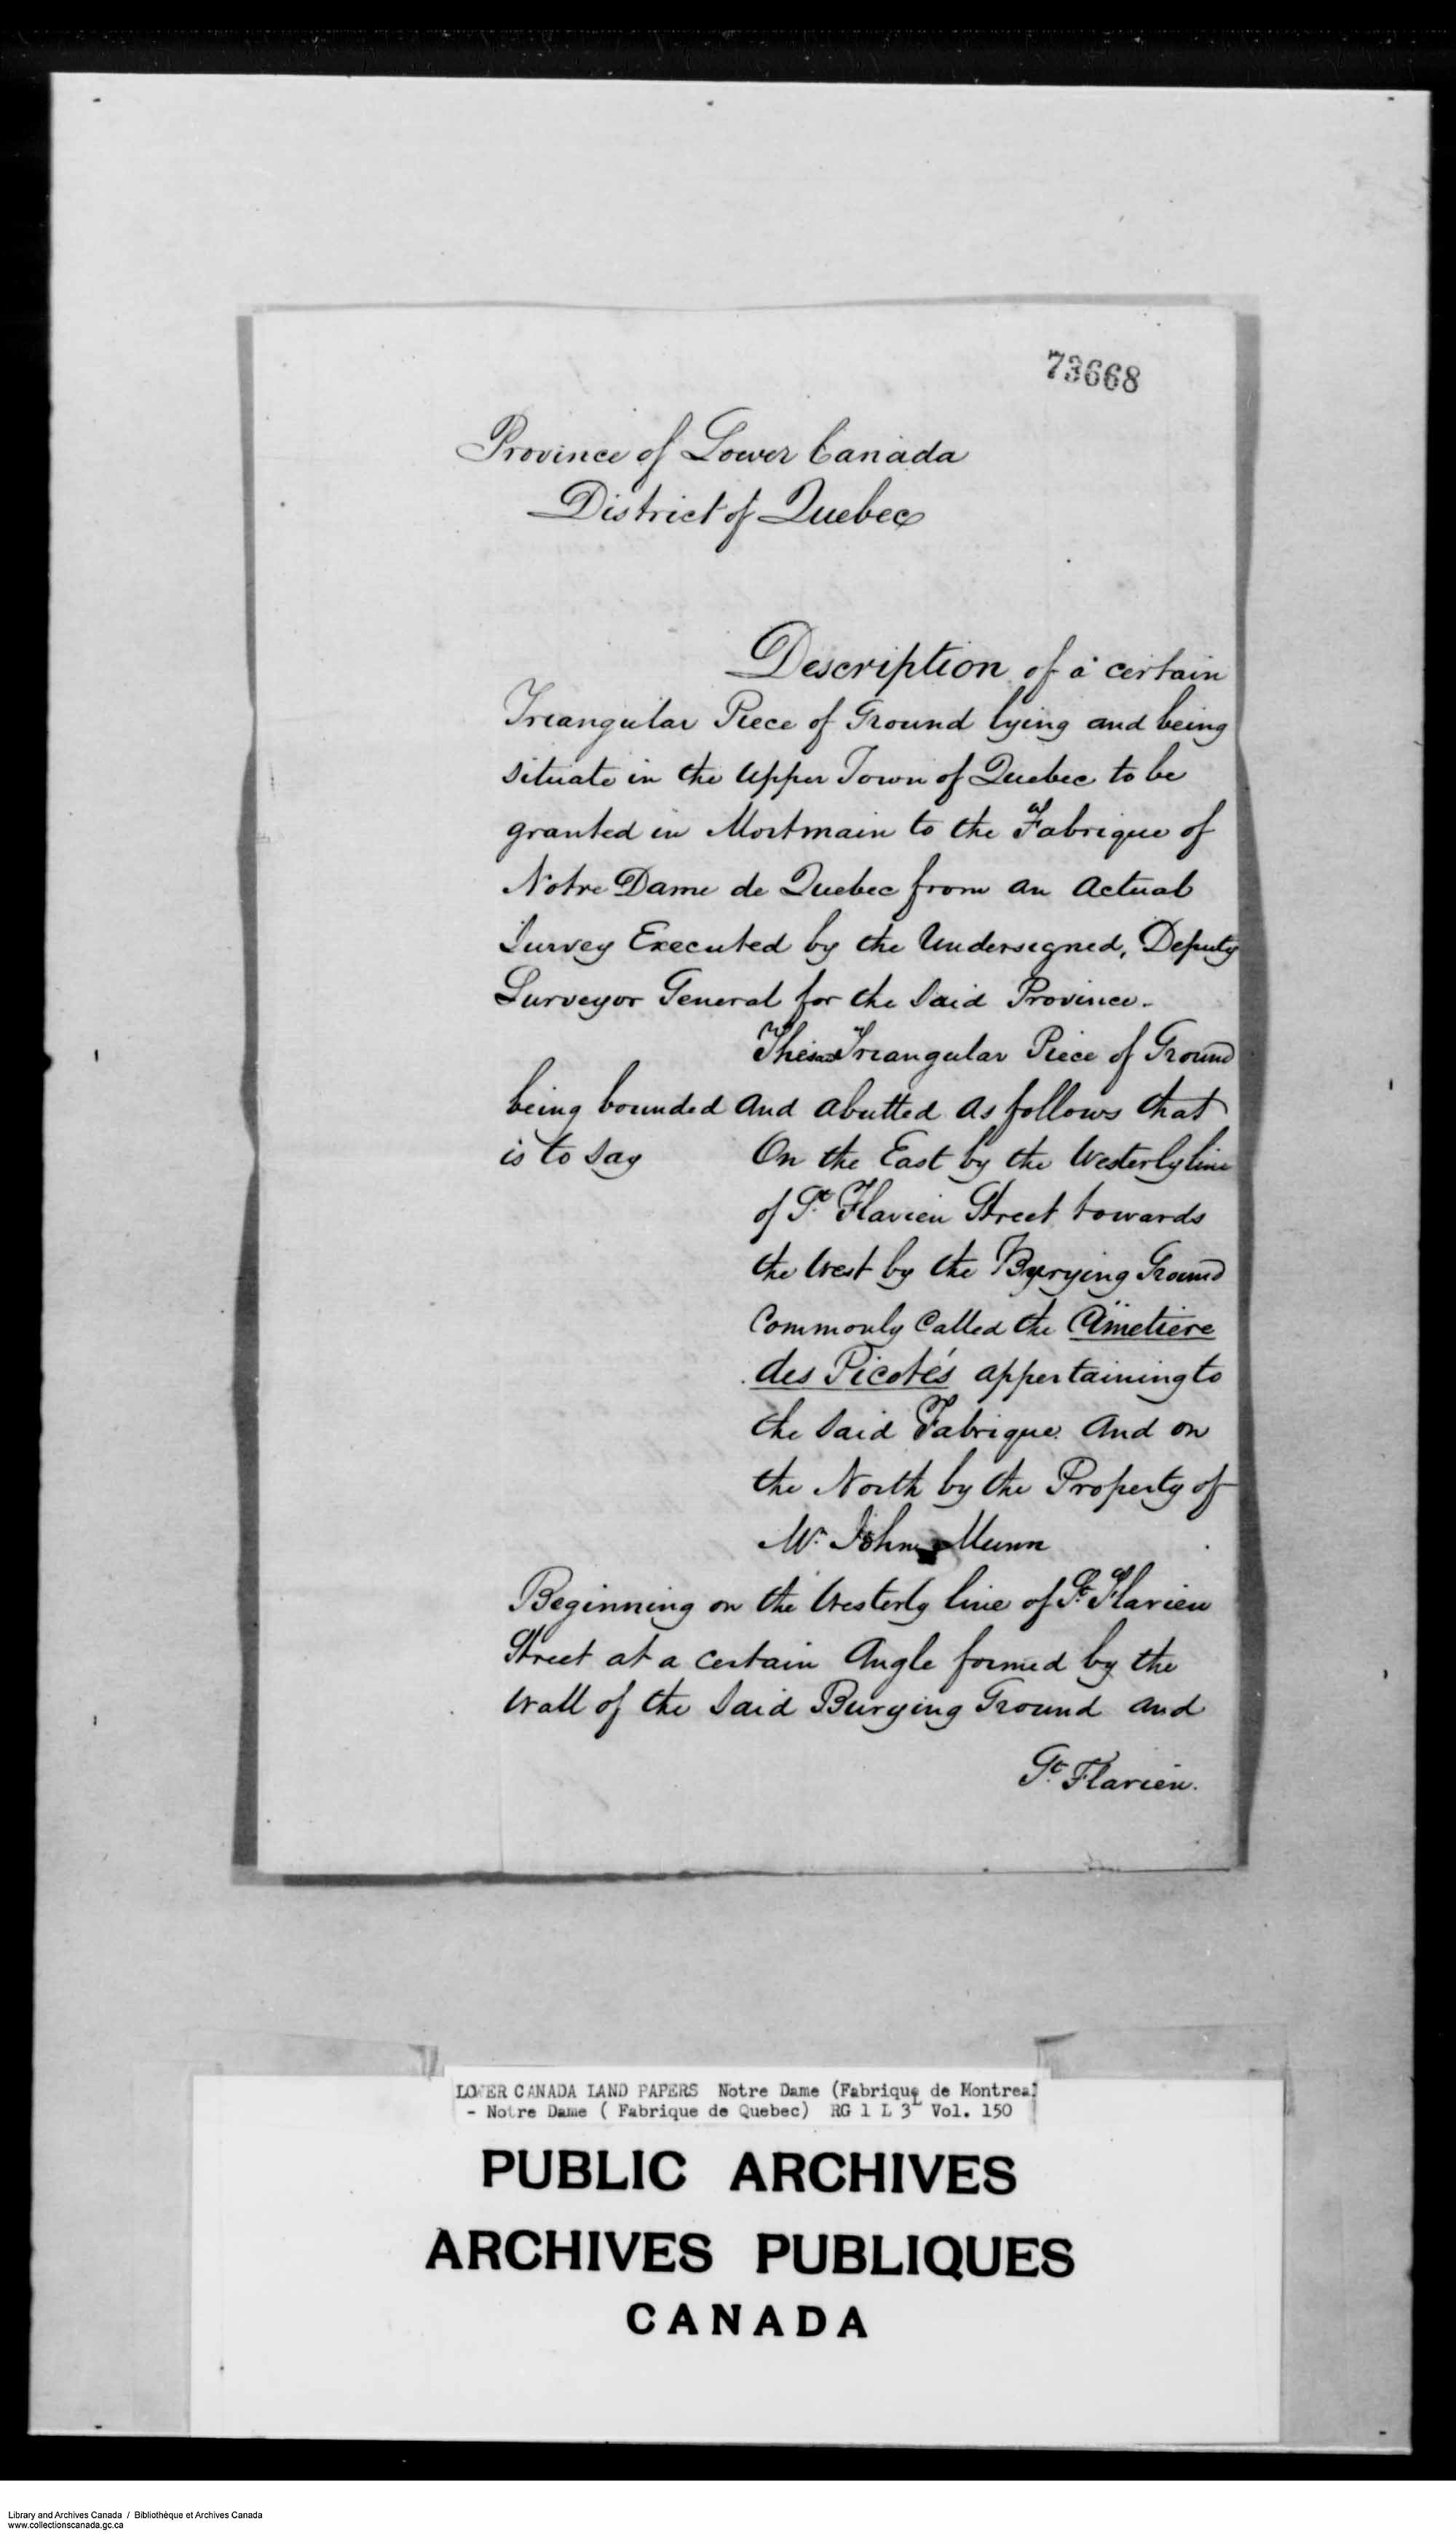 73668
Province of Lower Canada
District of Quebec
Description of a certain
Triangular Piece of Ground lying and being
situate in the Upper Town of Quebec to be
granted in Mortmain to the Fabrique of
Notre Dame de Quebec from an Actual
Survey Executed by the Undersigned, Deputy
Surveyor General for the Said Province.
Triangular Piece of Ground
being bounded and abutted as follows that
is to Say On the East by the Westerly line
of St. Flavien Street towards
the West by the Burying Ground
Commonly Called the Cimetiere
des Picotés appertaining to
the Said Fabrique And on
the North by the Property of
Mr. John Munn
Beginning on the Westerly line of St. Flavien
Street at a certain Angle formed by the
Wall of the Said Burying Ground and
St. Flavien.
LOWER CANADA LAND PAPERS Notre Dame (Fabrique de Montreal
- Notre Dame ( Fabrique de Quebec) RG 1 L 3L Vol. 150
PUBLIC ARCHIVES
ARCHIVES PUBLIQUES
CANADA
Library and Archives Canada / Bibliothèque et Archives Canada
www.collectionscanada.gc.ca